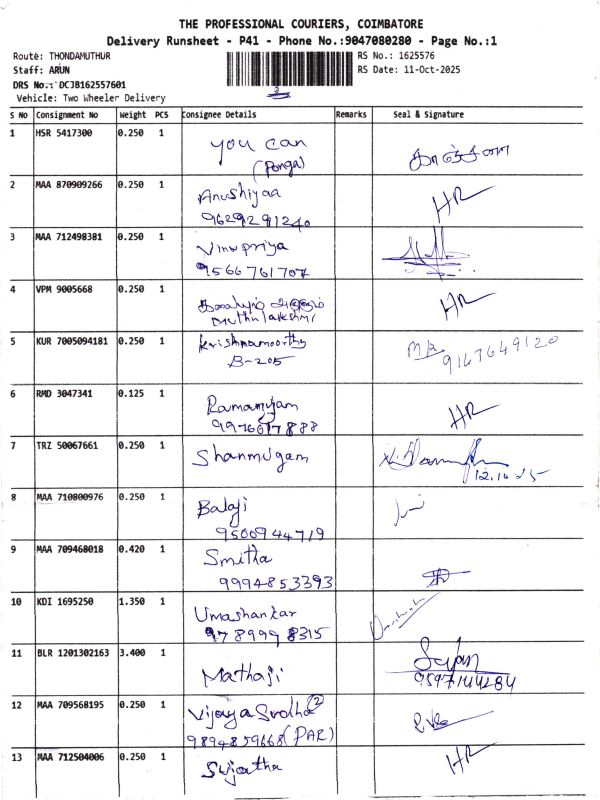 THE PROFESSIONAL COURIERS, COIMBATORE
Delivery Runsheet - P41 - Phone No.:9047080280 - Page No.:1
Route: THONDAMUTHUR
RS No.: 1625576
Staff: ARUN
RS Date: 11-Oct-2025
DRS No.: DCJB162557601
Vehicle: Two Wheeler Delivery
S No Consignment No Weight PCS Consignee Details Remarks Seal & Signature
1 HSR 5417300 0.250 1 you can
(Ponga)
காஞ்சனா
2 MAA 870909266 0.250 1 Anushiyaa HR
9629291240
3 MAA 712498381 0.250 1 Vinupriya
9566761707
4 VPM 9005668 0.250 1 HR
Muthulakshmi
5 KUR 7005094181 0.250 1 Krishnamoorthy
B-205
9167649120
6 RMD 3047341 0.125 1 Ramaniyam HR
9976617888
7 TRZ 50067661 0.250 1 Shanmugam
12.10.25
8 MAA 710800976 0.250 1 Balaji
9500944719
9 MAA 709468018 0.420 1 Smitha
9994853393
10 KDI 1695250 1.350 1 Umashankar
9789998315
11 BLR 1201302163 3.400 1 Mathaji
0597144284
12 MAA 709568195 0.250 1 Vijaya Srodha (2)
9894859668 (PAR)
13 MAA 712504006 0.250 1 Sujatha HR